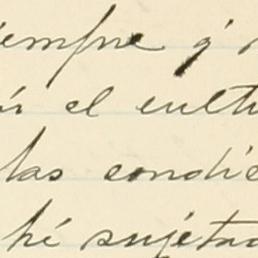 iempre y
el culti
las condic
hé sujetad